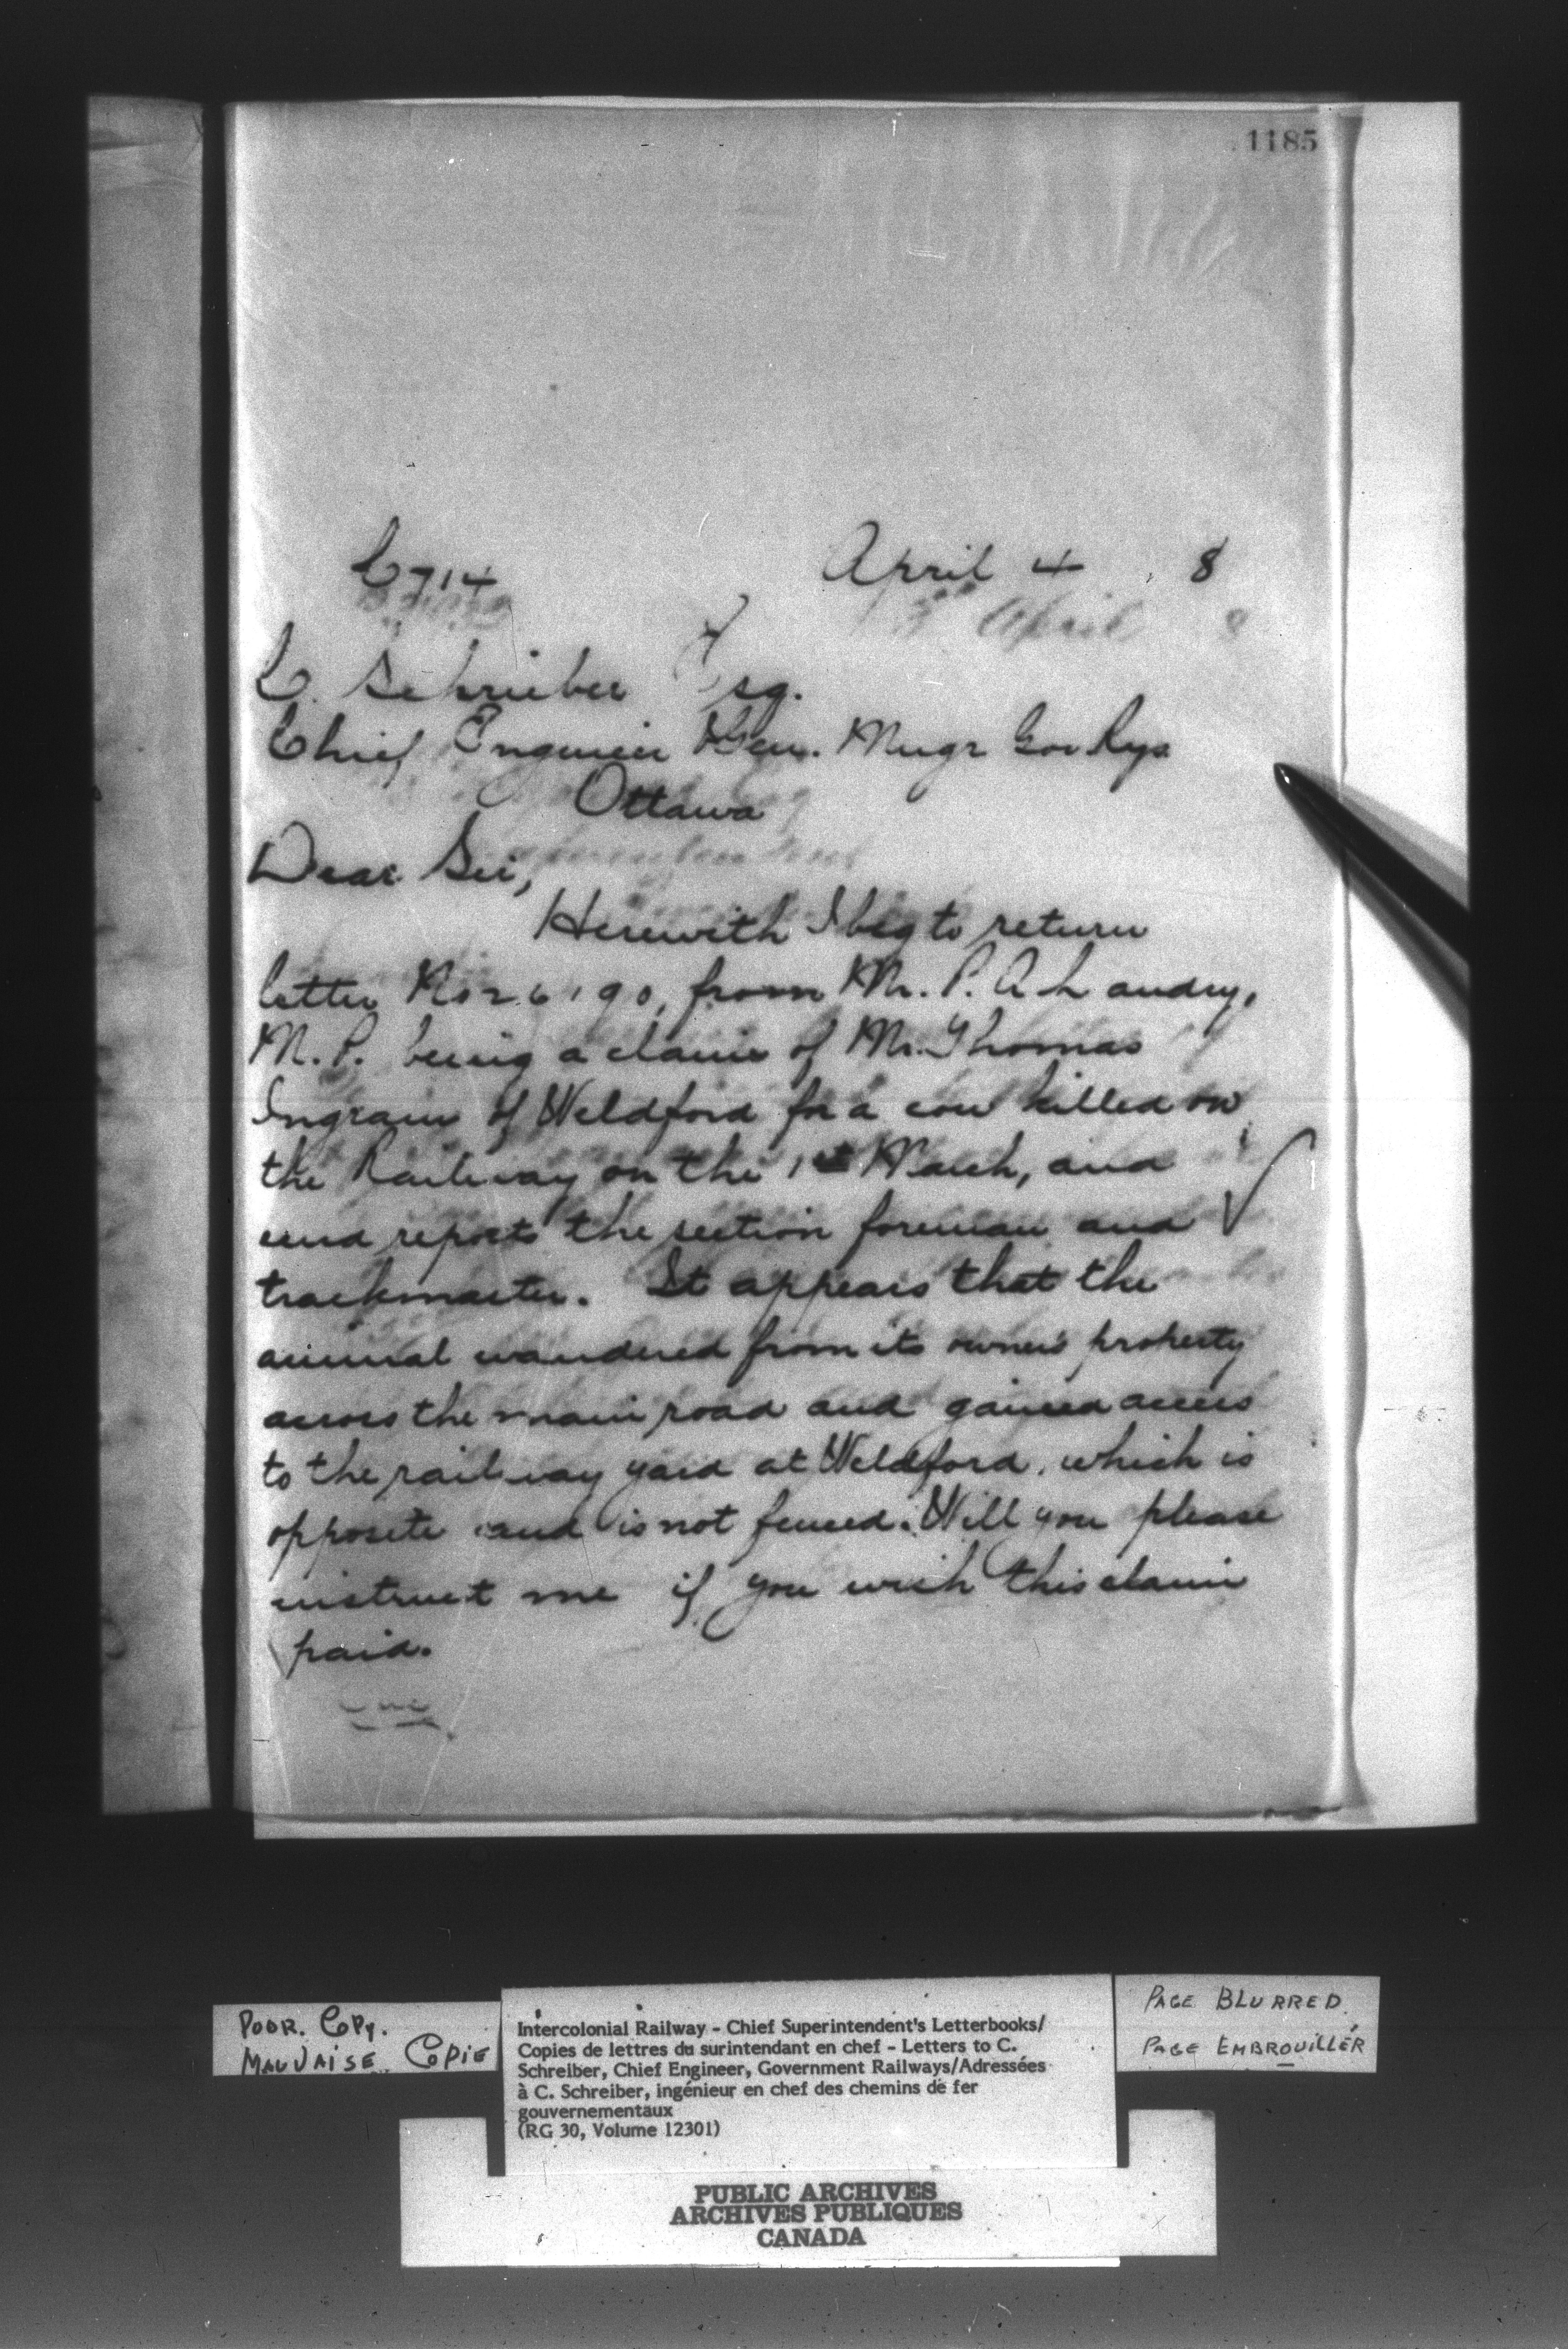 1185
C714 April 4 , 8
C. Schrieber Esq.
Chief Engineer Gen. Mngr Gov Rys
Ottawa
Dear Sir,
Herewith I beg to return
letter No 26190, from Mr. P. A Landry,
M. P. being a claim of Mr. Thomas
Ingram of Weldford for a cow killed on
the Railway on the 1st March, and
and reports the section foreman and
trackmaster. It appears that the
animal wandered from its owner's property
across the main road and gained access
to the railway yard at Weldford, which is
opposite and is not fenced. Will you please
instruct me if you wish this claim
paid.
POOR. COPY.
MAUVAISE COPIE
Intercolonial Railway - Chief Superintendent's Letterbooks/
Copies de lettres du surintendant en chef - Letters to C.
Schreiber, Chief Engineer, Government Railways/Adressées
à C. Schreiber, ingénieur en chef des chemins de fer
gouvernementaux
(RG 30, Volume 12301)
PAGE BLURRED.
PAGE EMBROUILLÉR
PUBLIC ARCHIVES
ARCHIVES PUBLIQUES
CANADA